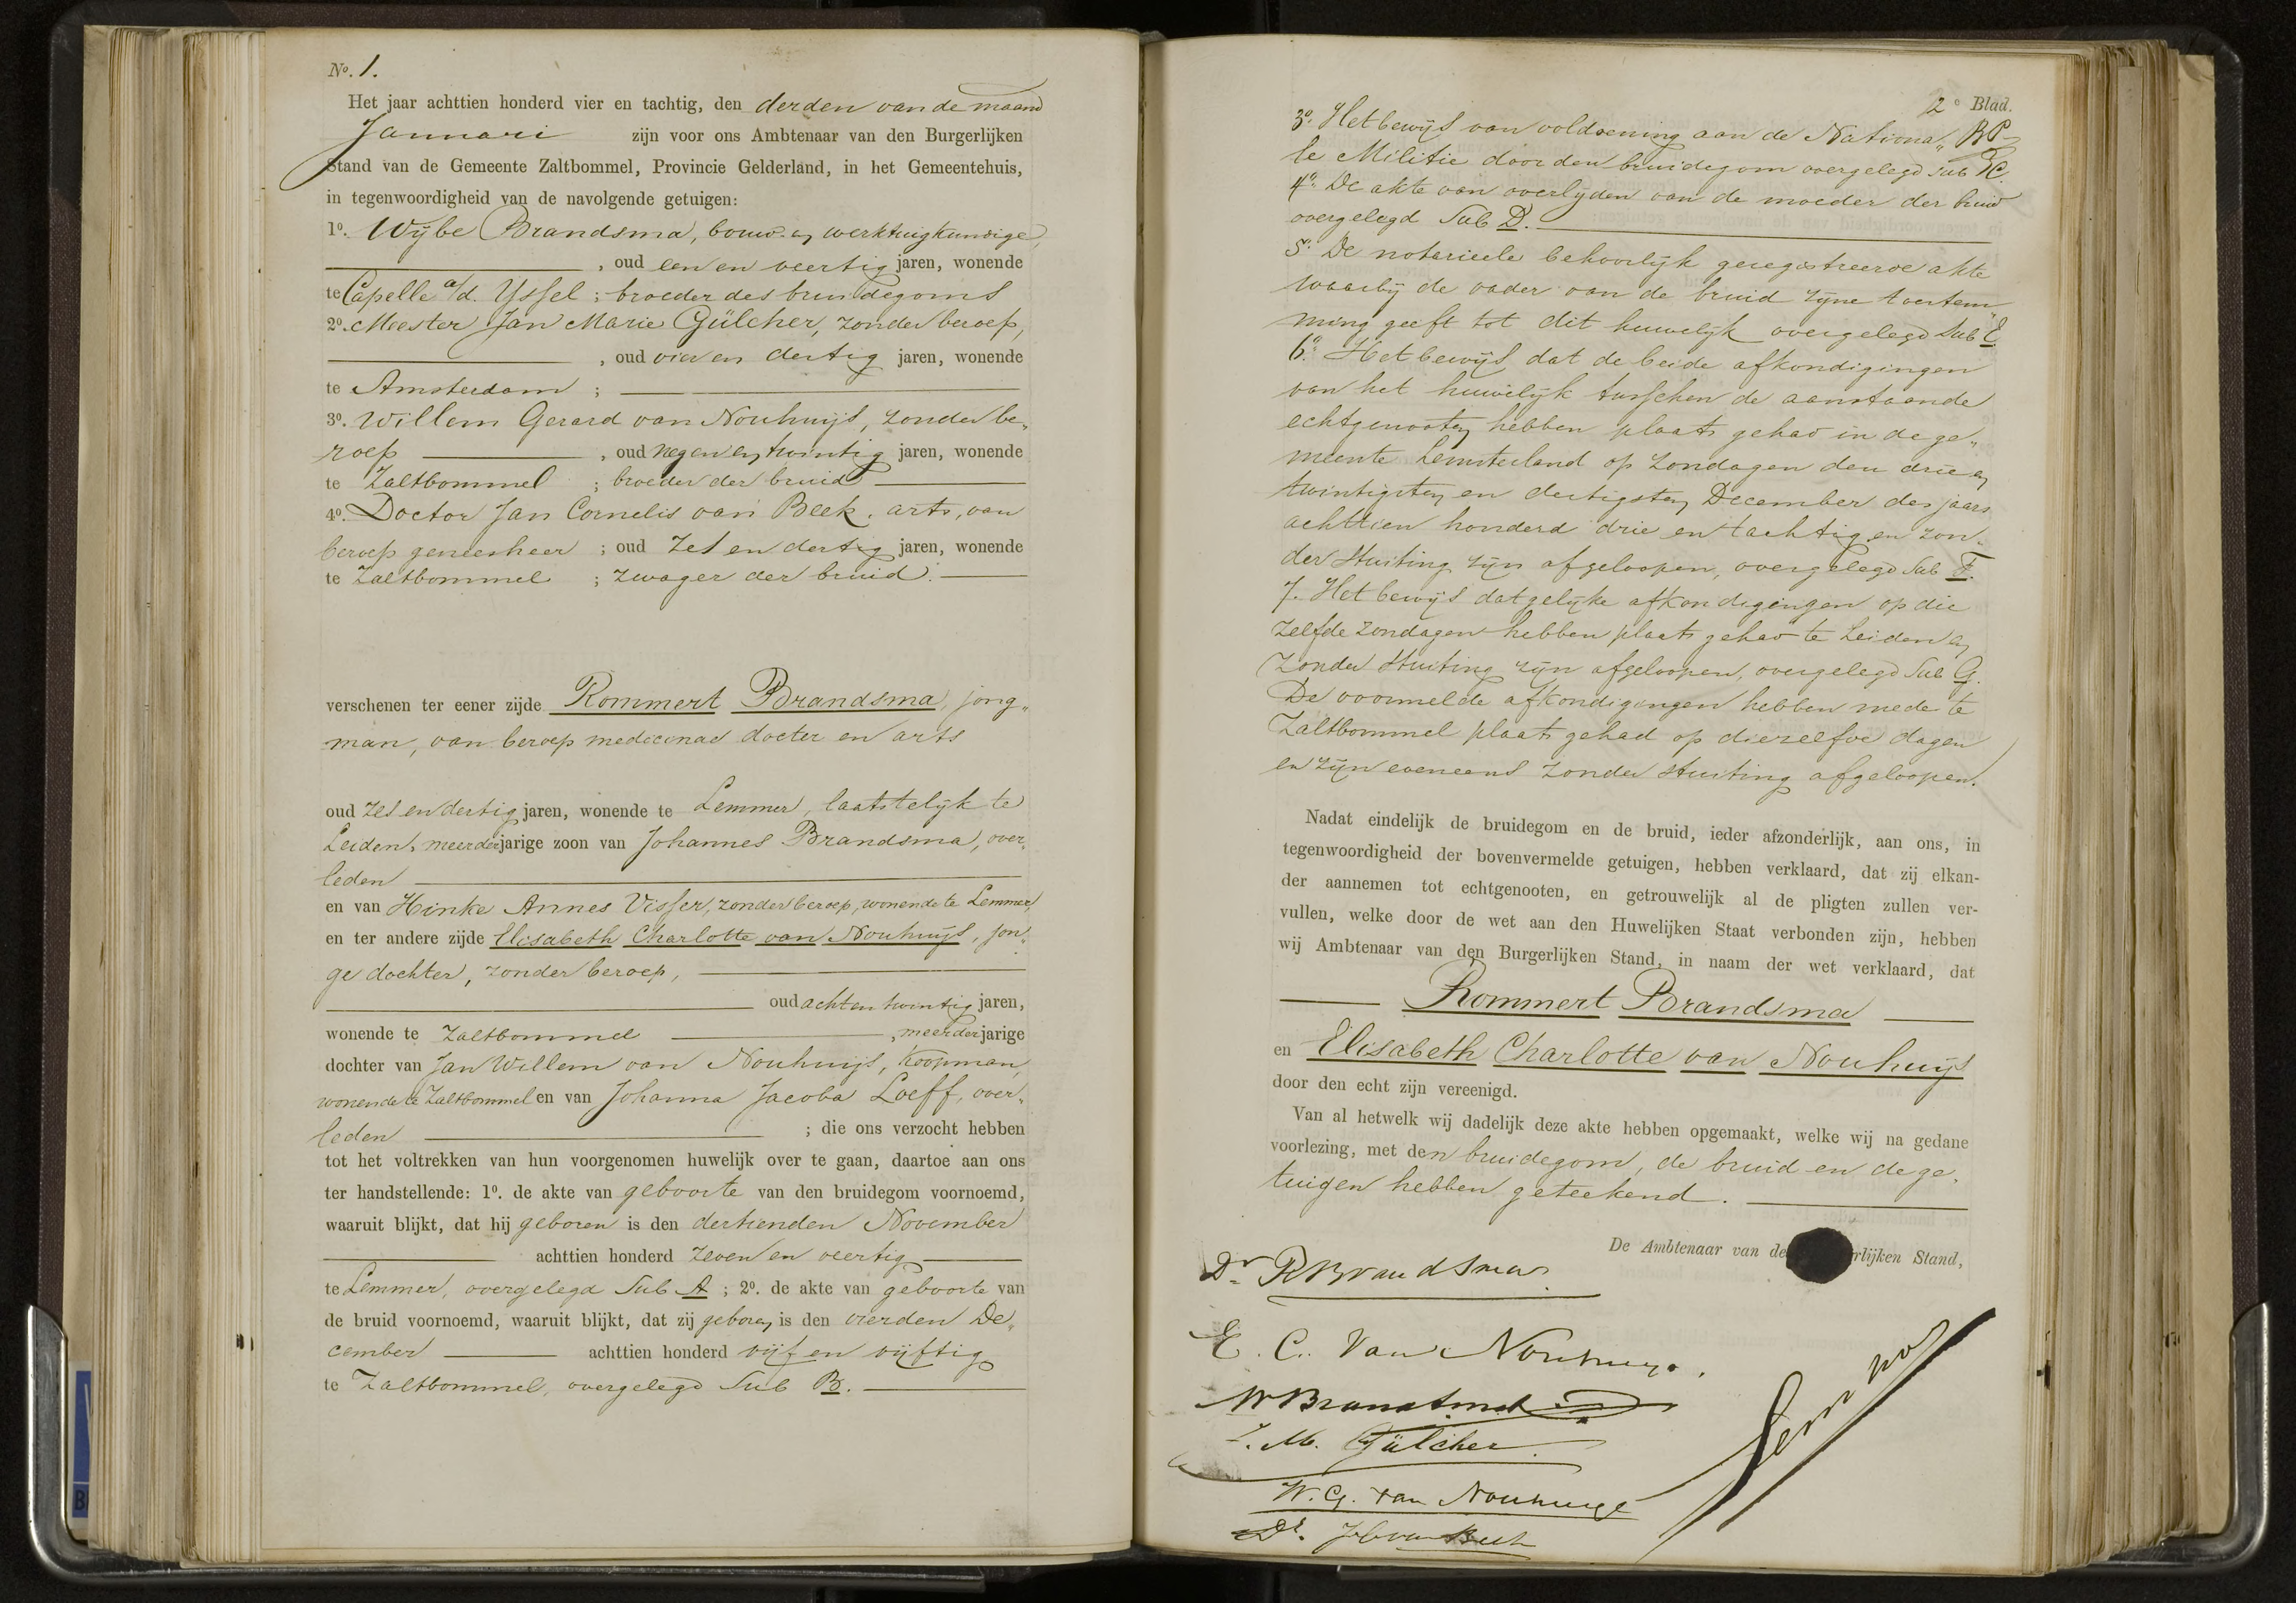 No. 1.
Het jaar achttien honderd vier en tachtig, den derden van de maand
Januari zijn voor ons Ambtenaar van den Burgerlijken
Stand van de Gemeente Zaltbommel, Provincie Gelderland, in het Gemeentehuis,
in tegenwoordigheid van de navolgende getuigen:
1o. Wijbe Brandsma, bouw- en werktuigkundige,
, oud een en veertig jaren, wonende
te Capelle a/d. IJssel ; broeder des bruidegoms
2o. Meester Jan Marie Gülcher, zonder beroep,
, oud vier en dertig jaren, wonende
te Amsterdam ;
3o. Willem Gerard van Nouhuijs, zonder be„
roep , oud negen en twintig jaren, wonende
te Zaltbommel ; broeder der bruid
4o. Doctor Jan Cornelis van Beek, arts, van
beroep geneesheer ; oud zes en dertig jaren, wonende
te Zaltbommel ; zwager der bruid.
verschenen ter eener zijde Rommert Brandsma, jong„
man, van beroep medicinae docter en arts
oud zes en dertig jaren, wonende te Lemmer, laatstelijk te
Leiden, meerderjarige zoon van Johannes Brandsma, over„
leden
en van Hinke Annes Visser, zonder beroep, wonende te Lemmer,
en ter andere zijde Elisabeth Charlotte van Nouhuijs, jon„
ge dochter, zonder beroep,
oud acht en twintig jaren,
wonende te Zaltbommel , meerderjarige
dochter van Jan Willem van Nouhuijs, koopman,
wonende te Zaltbommel en van Johanna Jacoba Loeff, over„
leden ; die ons verzocht hebben
tot het voltrekken van hun voorgenomen huwelijk over te gaan, daartoe aan ons
ter handstellende: 1o. de akte van geboorte van den bruidegom voornoemd,
waaruit blijkt, dat hij geboren is den dertienden November
achttien honderd zeven en veertig
te Lemmer, overgelegd sub A ; 2o. de akte van geboorte van
de bruid voornoemd, waaruit blijkt, dat zij geboren is den vierden De„
cember achttien honderd vijf en vijftig
te Zaltbommel, overgelegd sub B.
2e Blad.
3o. Het bewijs van voldoening aan de Nationa„
le Militie door den bruidegom overgelegd sub C.
4o. De akte van overlijden van de moeder der bruid
overgelegd sub D.
5o. De notarieele behoorlijk geregistreerde akte
waarbij de vader van de bruid zijne toestem„
ming geeft tot dit huwelijk overgelegd sub E.
6o. Het bewijs dat de beide afkondigingen
van het huwelijk tusschen de aanstaande
echtgenooten hebben plaats gehad in de ge„
meente Lemsterland op Zondagen den drie en
twintigsten en dertigsten December des jaars
achttien honderd drie en tachtig en zon„
der stuiting zijn afgeloopen, overgelegd sub F.
7. Het bewijs dat gelijke afkondigingen op die
zelfde Zondagen hebben plaats gehad te Leiden en
zonder stuiting zijn afgeloopen, overgelegd sub G.
De voormelde afkondigingen hebben mede te
Zaltbommel plaats gehad op diezelfde dagen
en zijn eveneens zonder stuiting afgeloopen.
Nadat eindelijk de bruidegom en de bruid, ieder afzonderlijk, aan ons, in
tegenwoordigheid der bovenvermelde getuigen, hebben verklaard, dat zij elkan-
der aannemen tot echtgenooten, en getrouwelijk al de pligten zullen ver-
vullen, welke door de wet aan den Huwelijken Staat verbonden zijn, hebben
wij Ambtenaar van den Burgerlijken Stand, in naam der wet verklaard, dat
Rommert Brandsma
en Elisabeth Charlotte van Nouhuijs
door den echt zijn vereenigd.
Van al hetwelk wij dadelijk deze akte hebben opgemaakt, welke wij na gedane
voorlezing, met den bruidegom, de bruid en de ge„
tuigen hebben geteekend.
De Ambtenaar van de rlijken Stand,
Dr. R Brandsma
E. C. van Nouhuys.
W Brandsma
J. M. Gülcher
W. G. van Nouhuys
Dr. J C van Beek